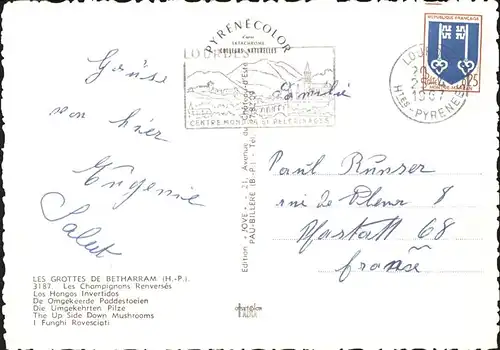 PYRÉNÉCOLOR
COULEURS NATURELLES
LOURDES
CENTRE MONDIAL DE PÈLERINAGES
REPUBLIQUE FRANCAISE
MONT-DE-MARSAN
0,25
LOURDES
1967
HTES-PYRENEES
Familie
Grüsse
von hier
Eugenie
Salut
Paul Runser
rue de Plener 8
Pfastatt 68
france
Edition "JOVE" - 21, Avenue du Château-d'Este
PAU-BILLERE (B.-P.) - Tél.
LES GROTTES DE BETHARRAM (H.-P.)
3187. Les Champignons Renversés
Los Hongos Invertidos
De Omgekeerde Paddestoelen
Die Umgekehrten Pilze
The Up Side Down Mushrooms
I Funghi Rovesciati